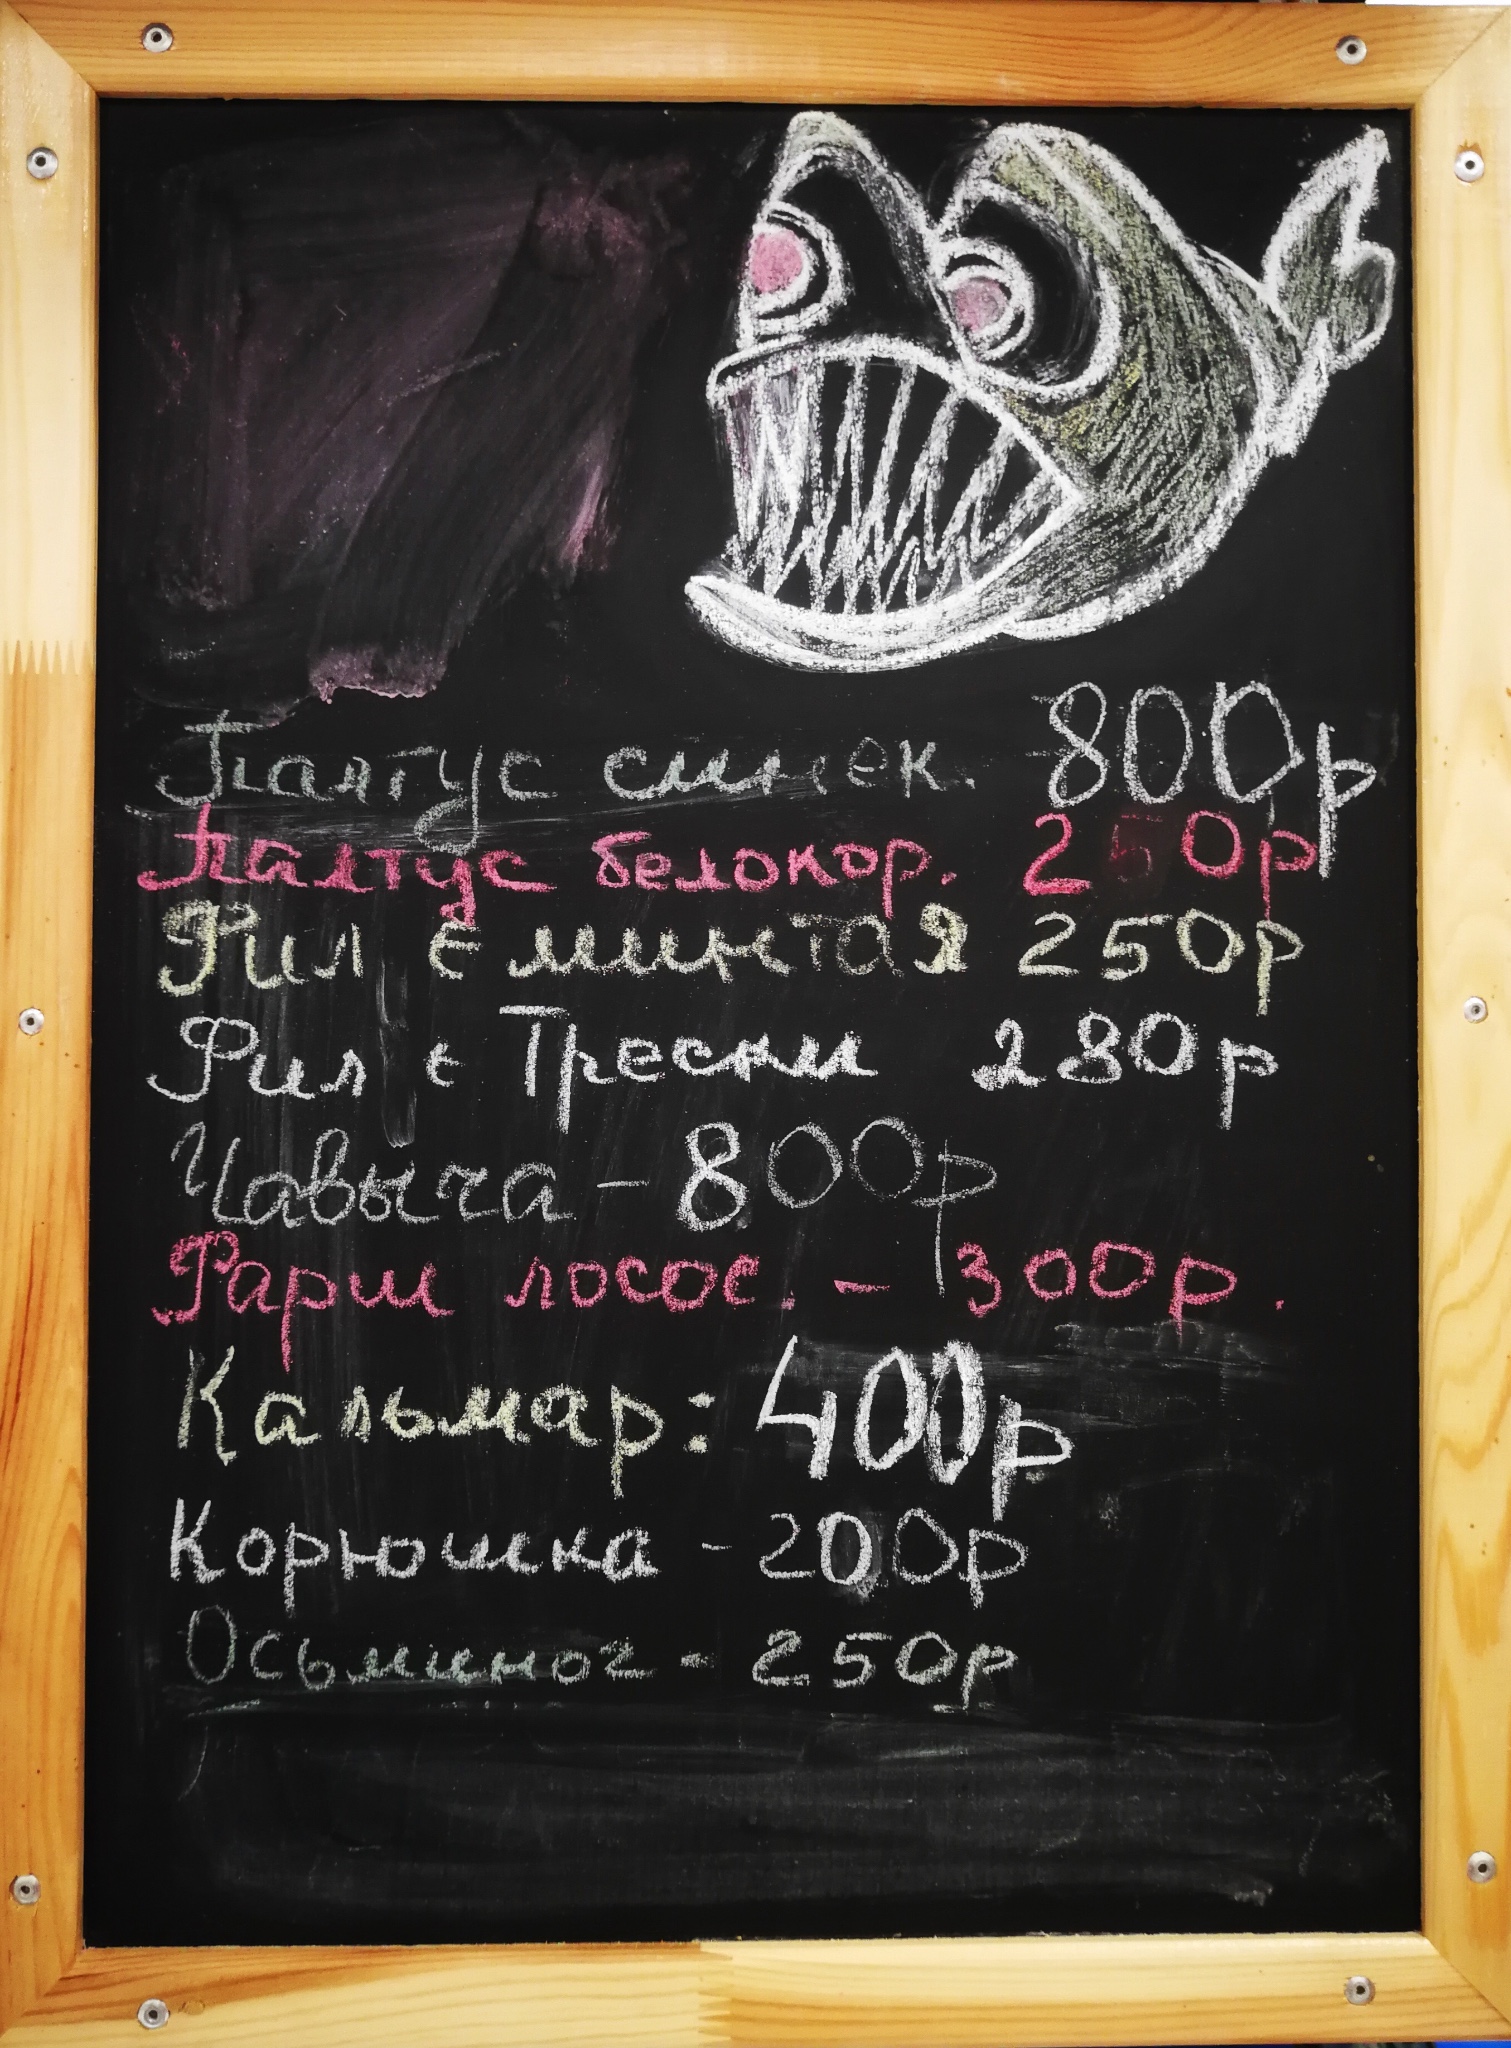 Палтус синек. 800р
Палтус белокор. 250р
Фил е минтая 250р
Фил е Трески 280р
Чавыча - 800р
Фарш лосос. - 300р.
Кальмар: 400р
Корюшка - 200р
Осьминог - 250р